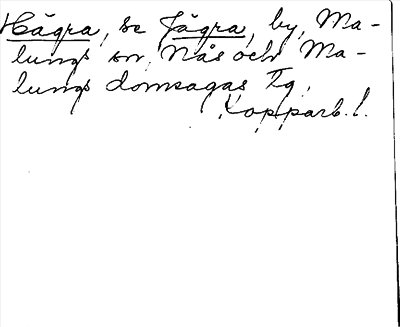 Hägra, se Jägra, by, Ma-
lungs sn, Nås och Ma-
lungs domsagas Tg,
Kopparb. l.